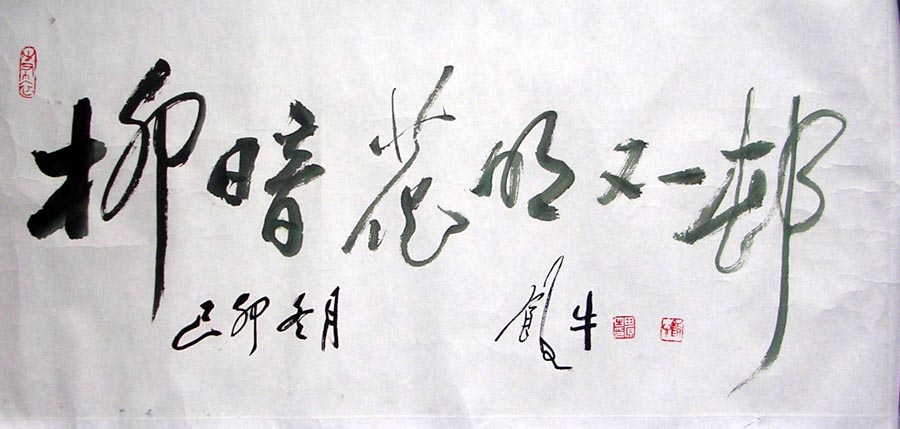 柳暗花明又一邨
己卯冬月 牛